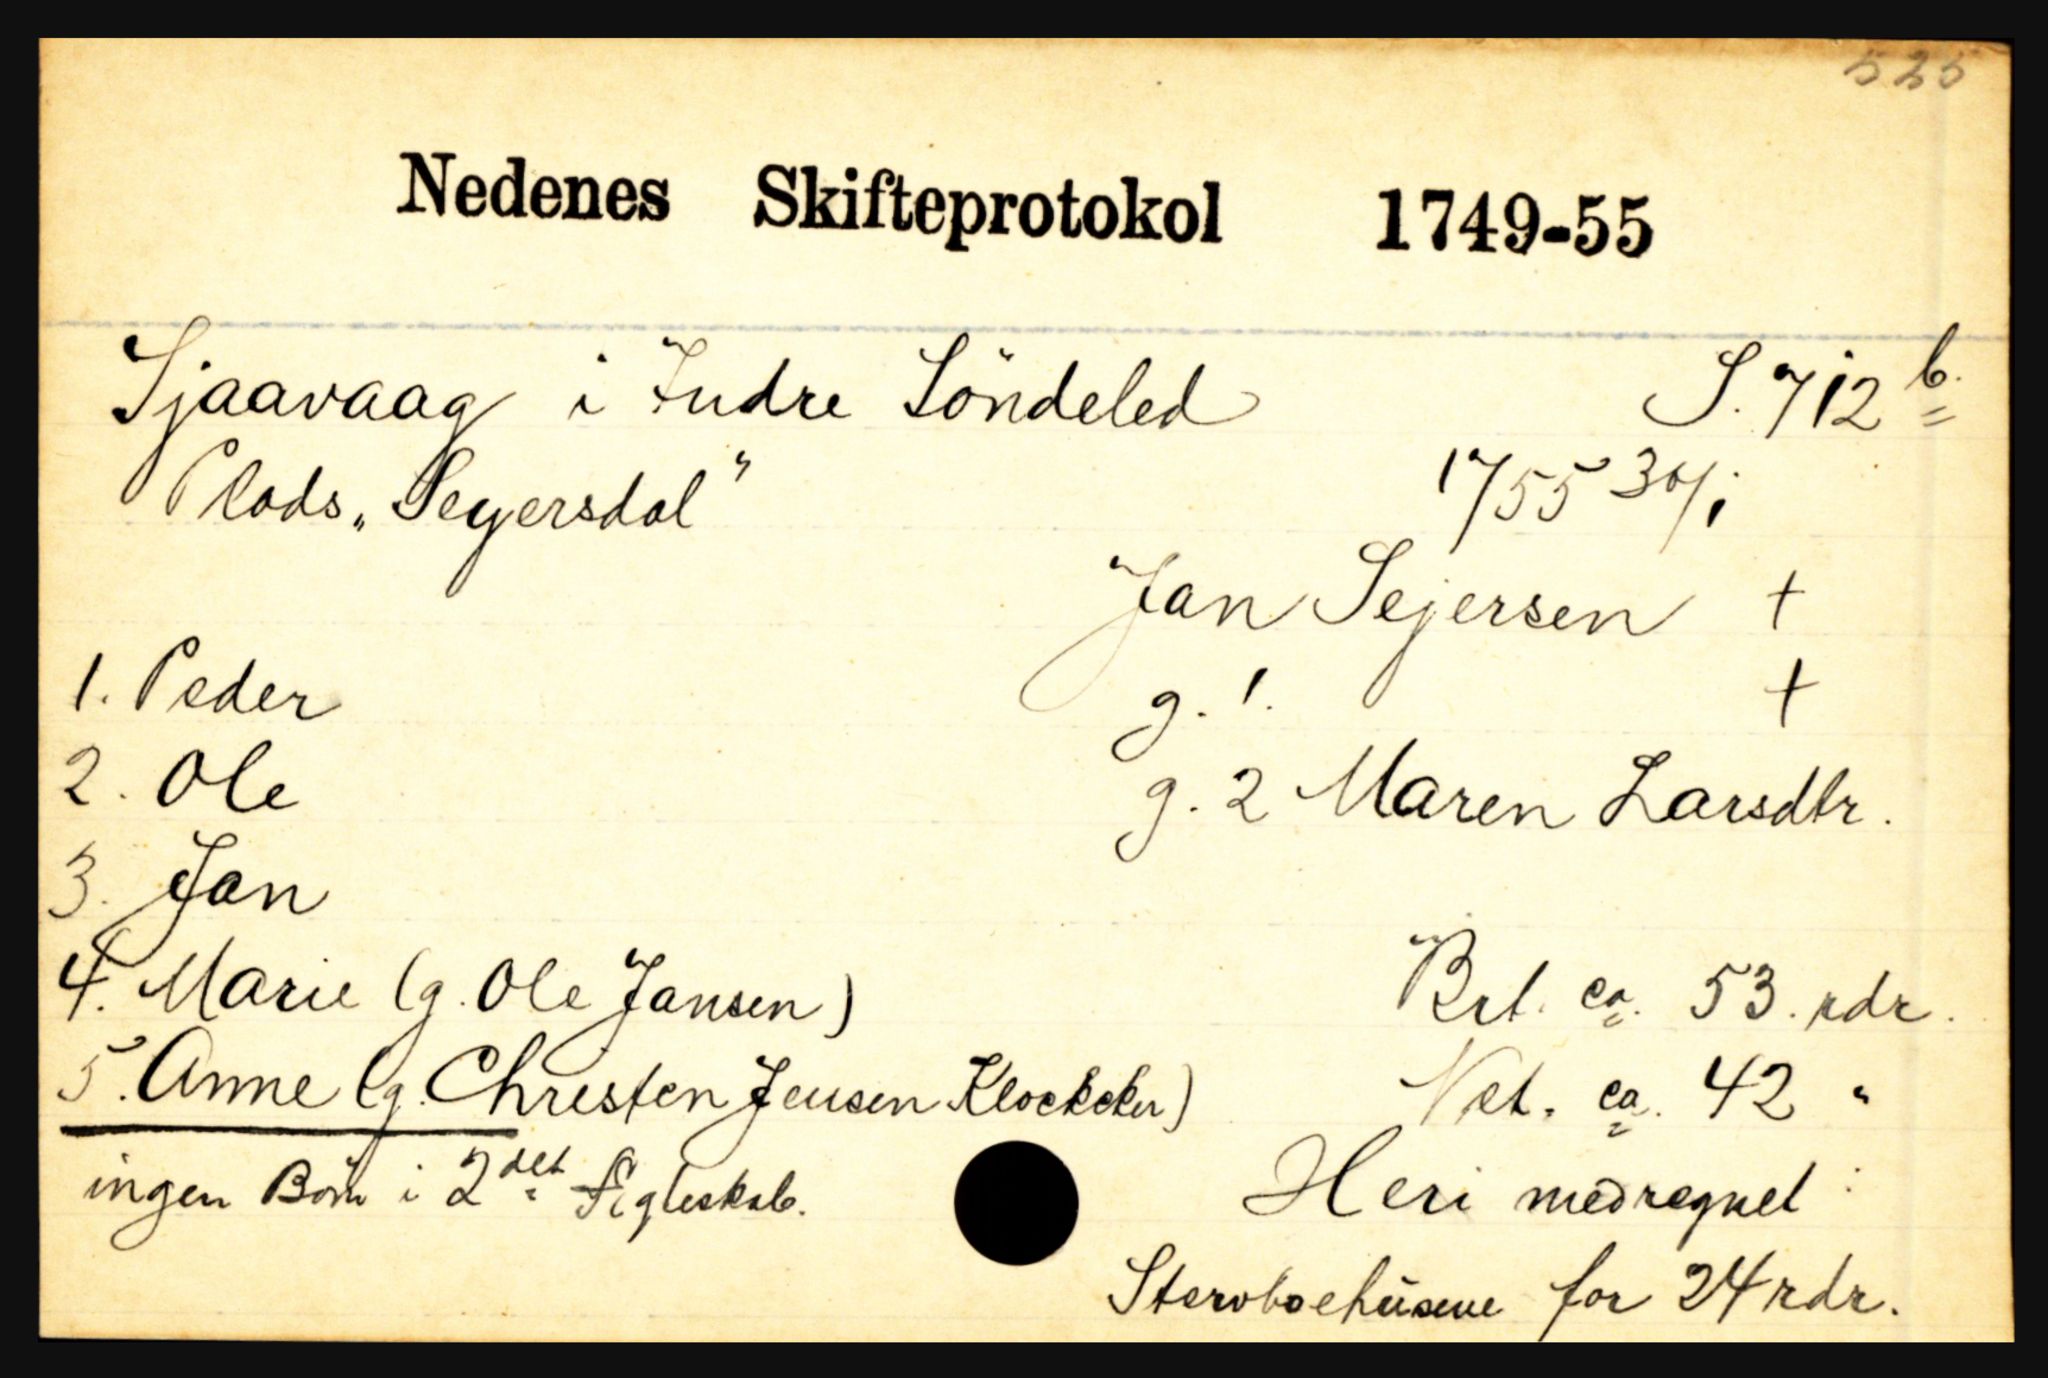 525
Nedenes Skifteprotokol 1749-55
Sjaavaag i Indre Söndeled S. 712 b.
Plads „Seyersdal" 1755 30/1
Jan Sejersen +
1. Peder g. 1. +
2. Ole g. 2 Maren Larsdtr.
3. Jan
4. Marie (g. Ole Jansen) Brt. ca. 53. rdr.
5. Anne (g. Christen Jensen Klockcker) Net. ca. 42 "
ingen Börn i 2det Ægteskab. Heri medregnet:
Stervboehüsene for 24 rdr.